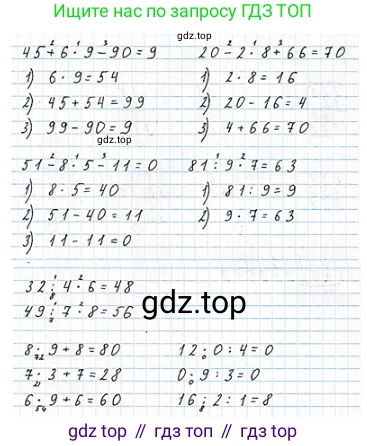 Ищите нас по запросу ГДЗ ТОП
gdz.top
45 + 6 · 9 - 90 = 9
1) 6 · 9 = 54
2) 45 + 54 = 99
3) 99 - 90 = 9
20 - 2 · 8 + 66 = 70
1) 2 · 8 = 16
2) 20 - 16 = 4
3) 4 + 66 = 70
51 - 8 · 5 - 11 = 0
1) 8 · 5 = 40
2) 51 - 40 = 11
3) 11 - 11 = 0
81 : 9 · 7 = 63
1) 81 : 9 = 9
2) 9 · 7 = 63
32 : 4 · 6 = 48
49 : 7 · 8 = 56
gdz.top
8 · 9 + 8 = 80
7 · 3 + 7 = 28
6 · 9 + 6 = 60
12 · 0 : 4 = 0
0 · 9 : 3 = 0
16 : 2 : 1 = 8
gdz.top // gdz.top // gdz.top